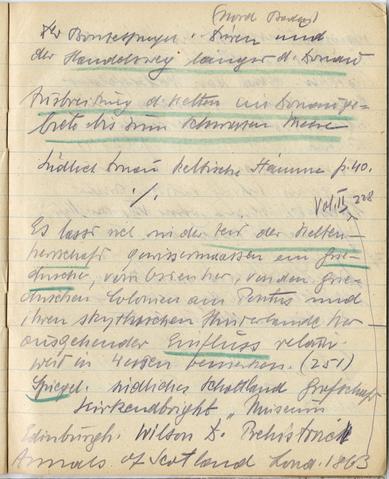 (Nord
Der Bronzespiegel. Düren und
der Handelsweg längs d. Donau
Ausbreitung d. Kelten im Donauge-
biete bis zum Schwarzen Meere
südlich Donau keltische Stämme p. 40.
./.
Vol. II 228
Es lässt sich in der Zeit der Kelten-
herrschaft gewissermassen ein grie-
chischer, vom Orient her, von den grie-
chischen Colonien am Pontus und
ihren skythischen Hinterlande her
ausgehender Einfluss relativ
weit in Westen bemerken. (251)
Spiegel. südliches Schottland Grafschaft
Kirkendbright „Museum
Edinburgh. Wilson D. Prehistoric
Annals of Scotland Lond. 1863